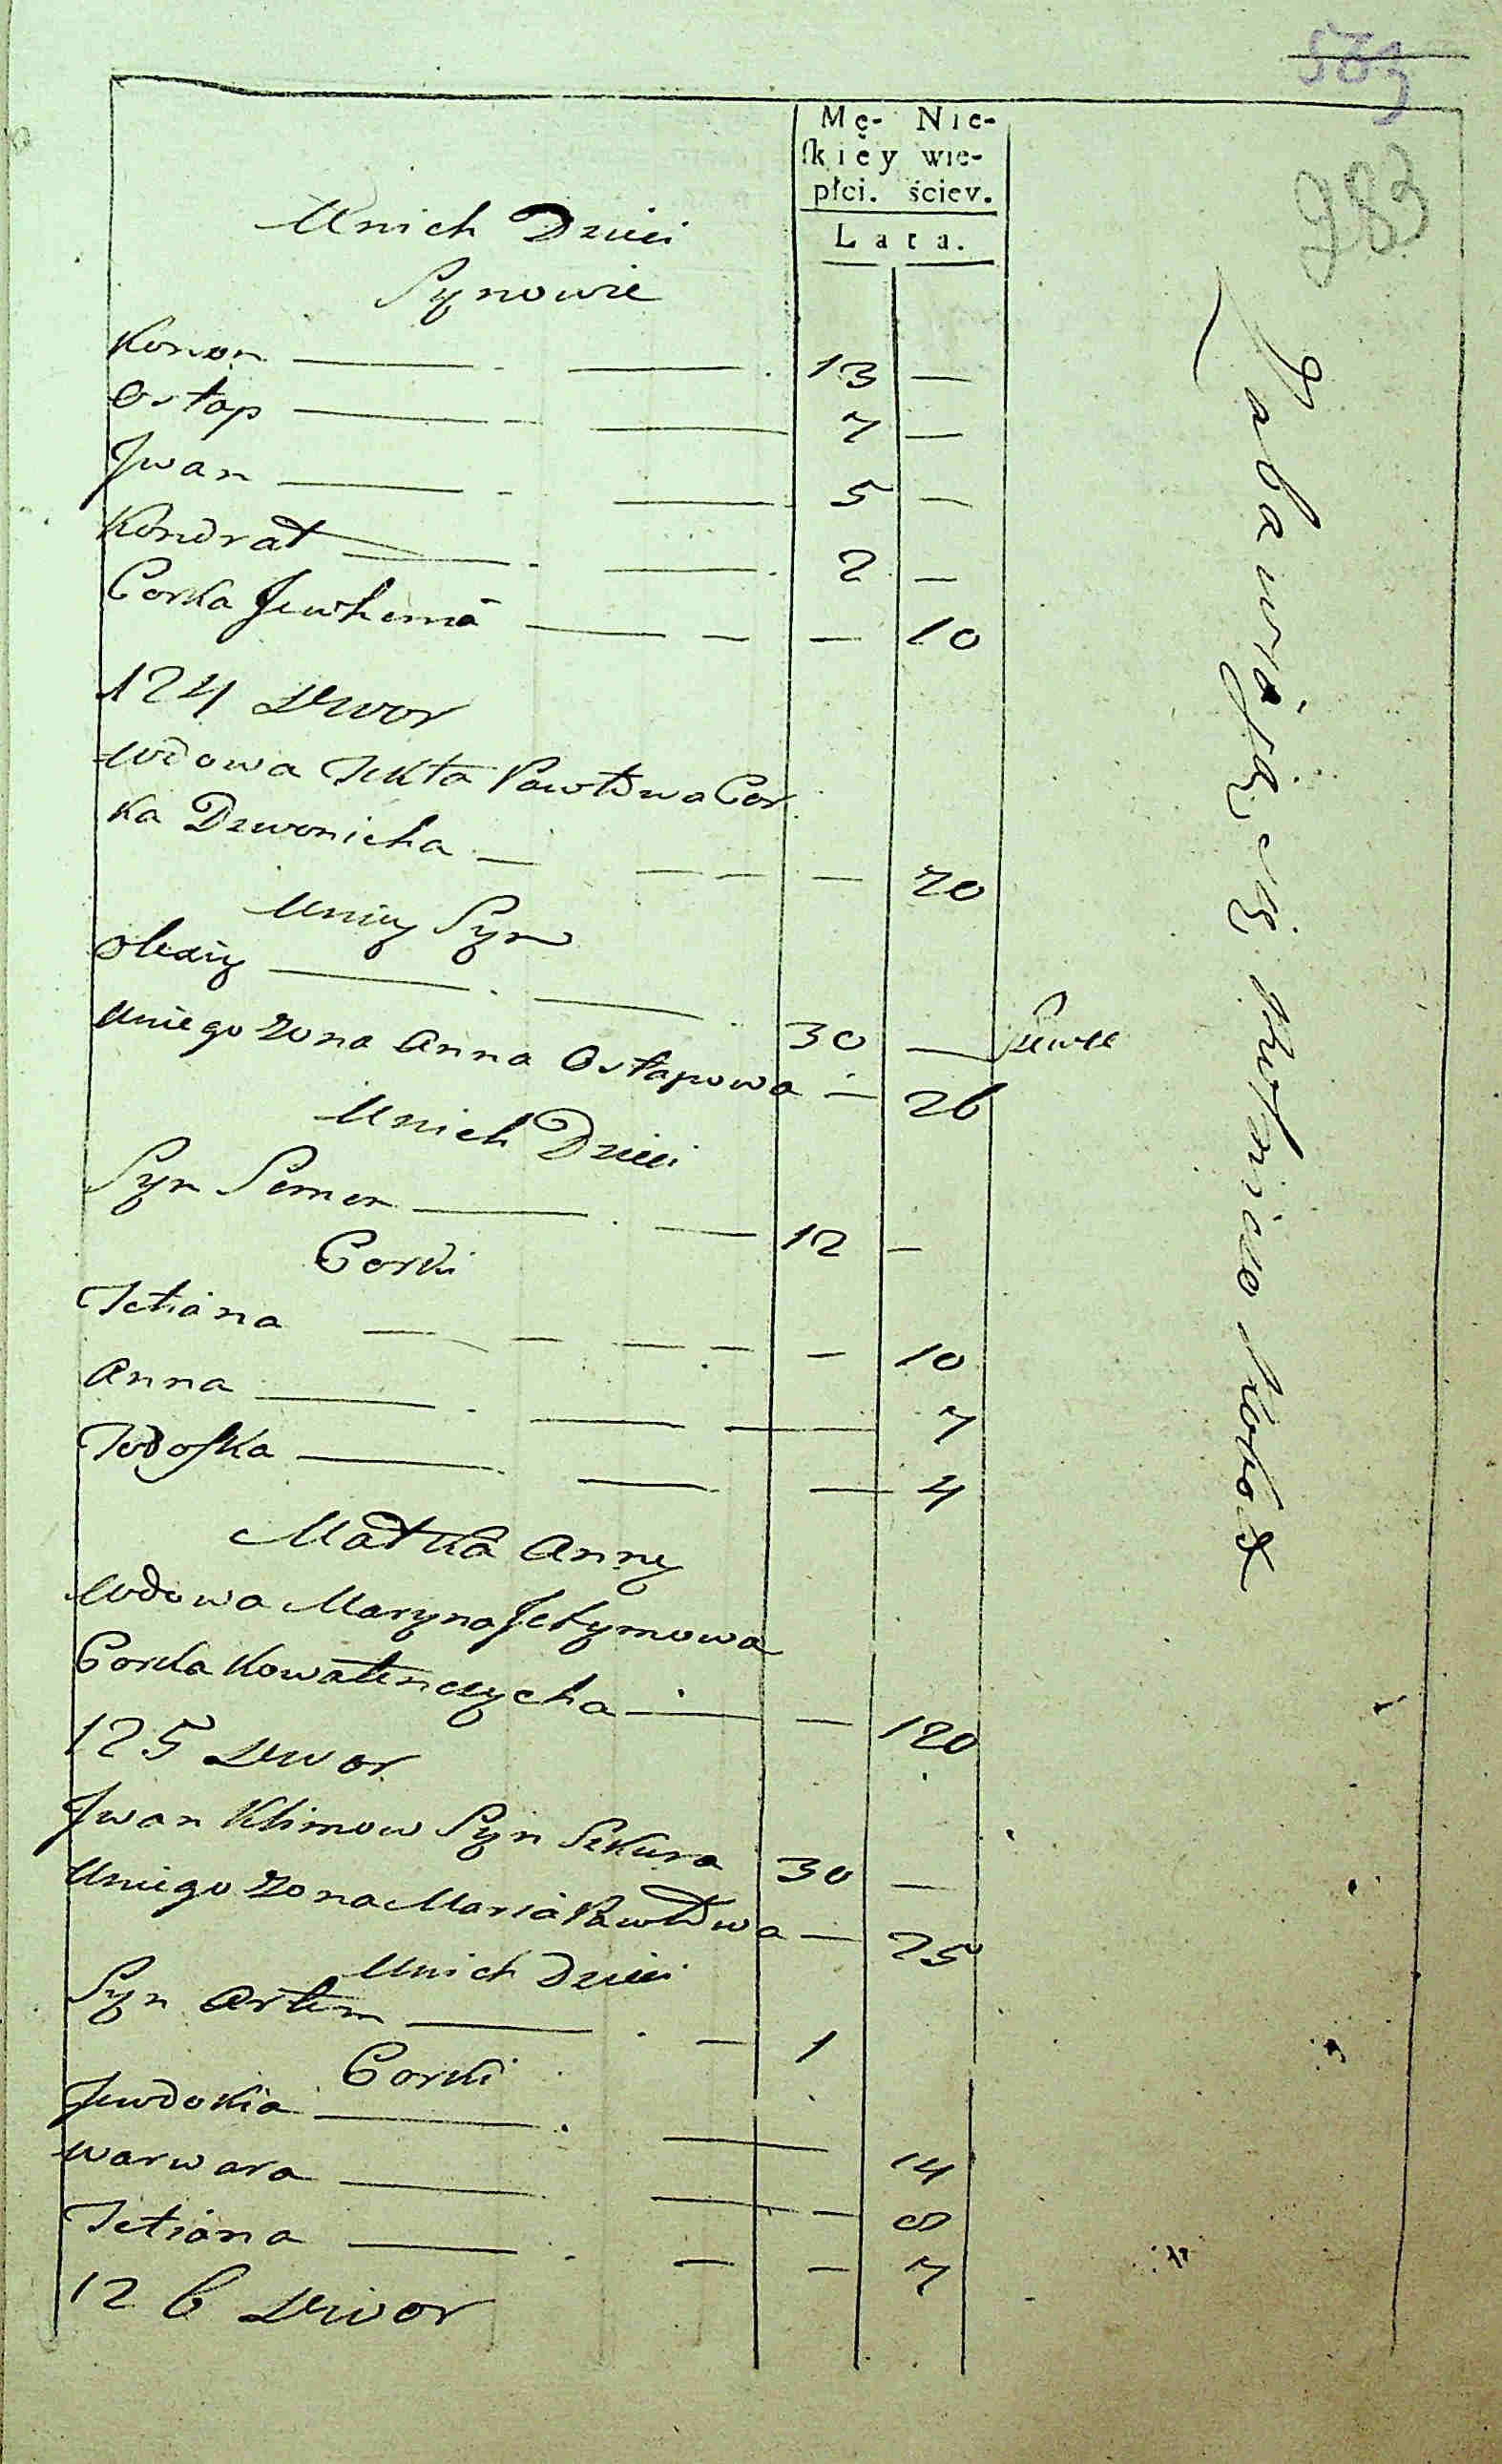 283
Mę- Nie-
skiéy wie-
płci. ściey.
Lata.
Unich Dzieci
Synowie
Konon 13 —
Ostap 7 —
Jwan 5 —
Kondrat 2 —
Corka Jewhenia — 10
124 Dwor
Wdowa Tekla Pawłowa Cor
ka Dzwonicha — 70
Uniey Syn
Olexiy 30 —
Uniego Zona Anna Ostapowa — 26
Unich Dzieci
Syn Semen 12 —
Corki
Tetiana — 10
Anna — 7
Todoska — 4
Matka Anny
Wdowa Maryna Jefymowa
Corka Kowalenczycha — 120
125 Dwor
Jwan Klimow Syn Szkura 30 —
Uniego Zona Maria Pawłowa — 25
Unich Dzieci
Syn Artem — 1
Corki
Jewdokia — 14
Warwara — 8
Tetiana — 7
126 Dwor
Zabawiaią się